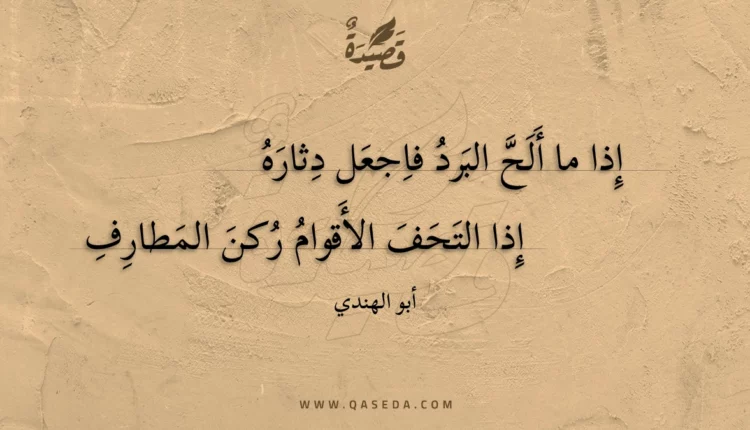 قَصِيدَةٌ
إِذا ما أَلَحَّ البَردُ فاِجعَل دِثارَهُ
إِذا التَحَفَ الأَقوامُ رُكنَ المَطارِفِ
أبو الهندي
WWW.QASEDA.COM